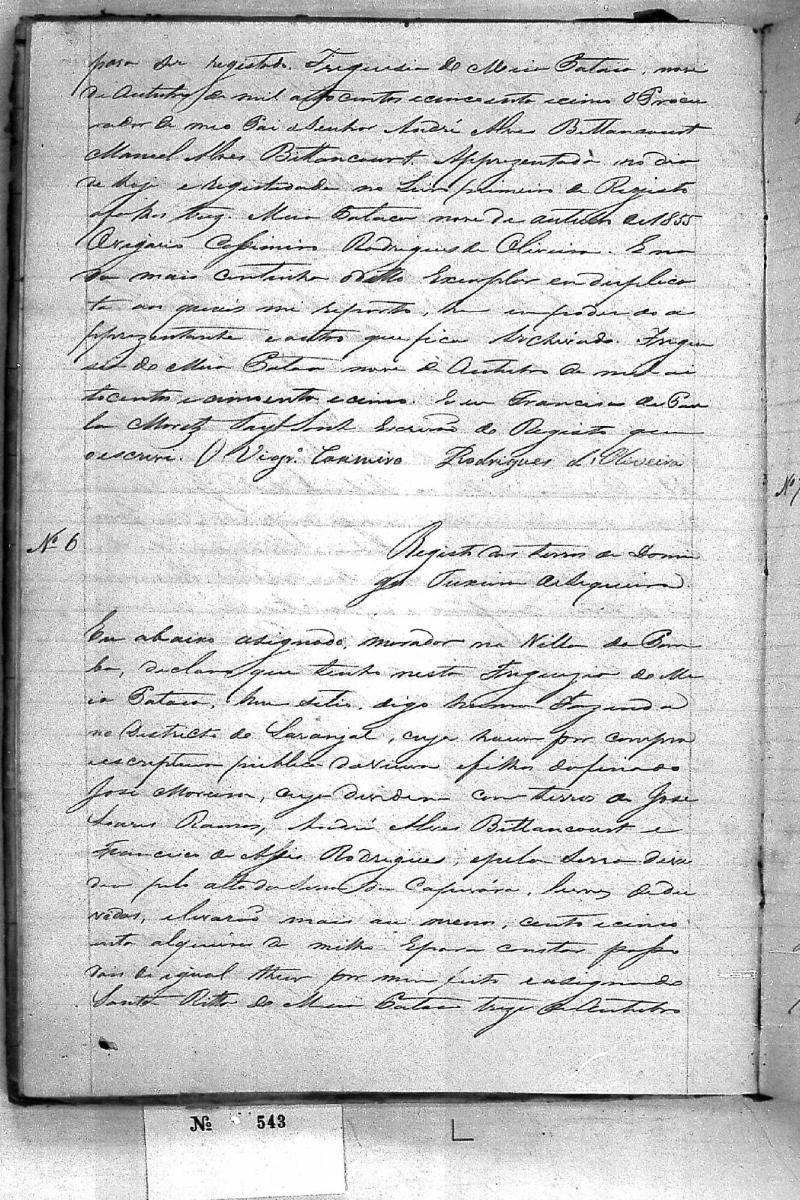 para ser registado. Freguesia do Meia Pataca, nove
de Outubro de mil oito centos e cincoenta e cinco O Procu
rador de meo Pai o Senhor André Alves Bittancourt
Manoel Alves Bittancourt. Apprezentada no dia
de hoje e registada no Livro primeiro de Registo
afolhas trez. Meia Pataca nove de outubro de 1855
Cassimiro Rodrigues de Oliveira. E na
da mais continha o dito Exemplar em duplica
ta aos quaes me reporto, hu em poder do a
pprezentante e outro que fica Archivado. Fregue
sia do Meia Pataca nove de Outubro de mil oi
tocentos e cincoenta e cinco. E eu Francisco de Pau
la Moretz Sohn Escrivão do Registo que
o escrevi. O Vigrº Casimiro Rodrigues d'Oliveira
Nº 7
Nº 6
Registo das terras de Domin
gos Teixeira de Siqueira
Eu abaixo asignado, morador na Villa do Pom
ba, declaro que tenho nesta Freguezia do Me
ia Pataca, hu sitio, digo huma Fazenda
no Districto do Laranjal, cuja houve por compra
e escriptura publica da viuva e filhos do finado
José Moreira, cuja devidem com terras de José
Soares Ramos, André Alves Bittancourt e
Francisco de Assis Rodrigues, e pela Serra devi
dem pelo alto da Serra da livres de du
vidas, e levarão mais ou menos, cento e cinco
enta alqueires de milho. E para constar passo
dois de igual theor por mim feito e asignado
Santa Ritta do Meia Pataca treze de Outubro
Nº 543